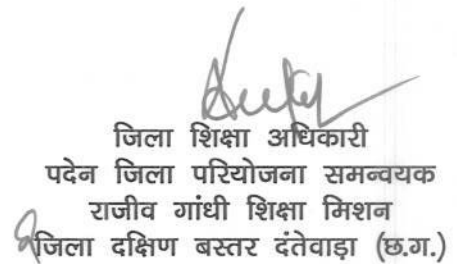 जिला शिक्षा अधिकारी
पदेन जिला परियोजना समन्वयक
राजीव गांधी शिक्षा मिशन
जिला दक्षिण बस्तर दंतेवाड़ा (छ.ग.)